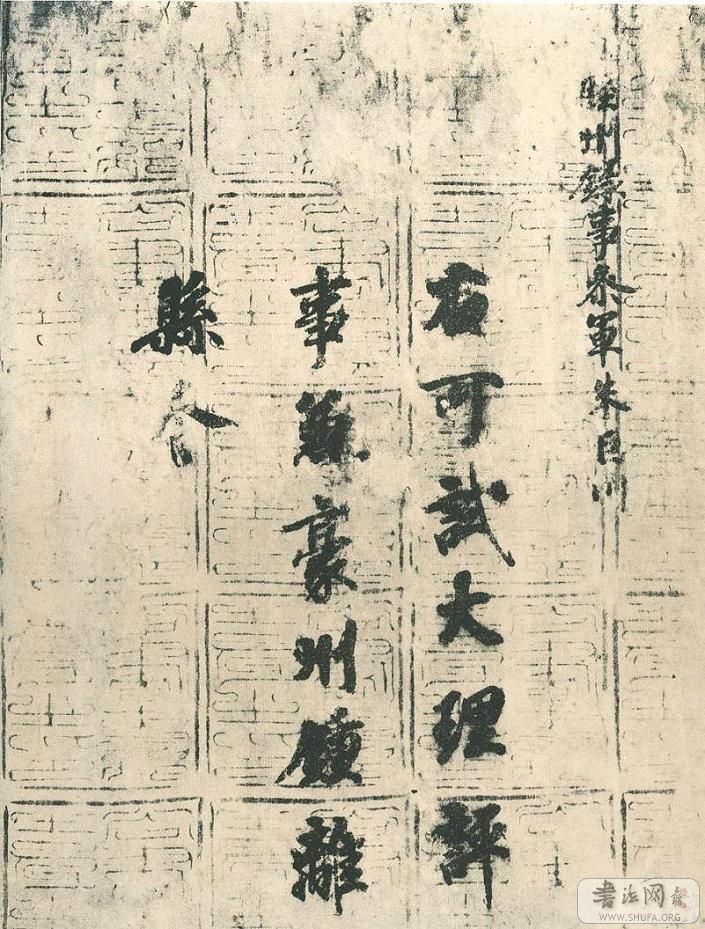 睦州録事參軍朱巨川
右可試大理評
事兼豪州鍾離
縣令
書法网
WWW.SHUFA.ORG